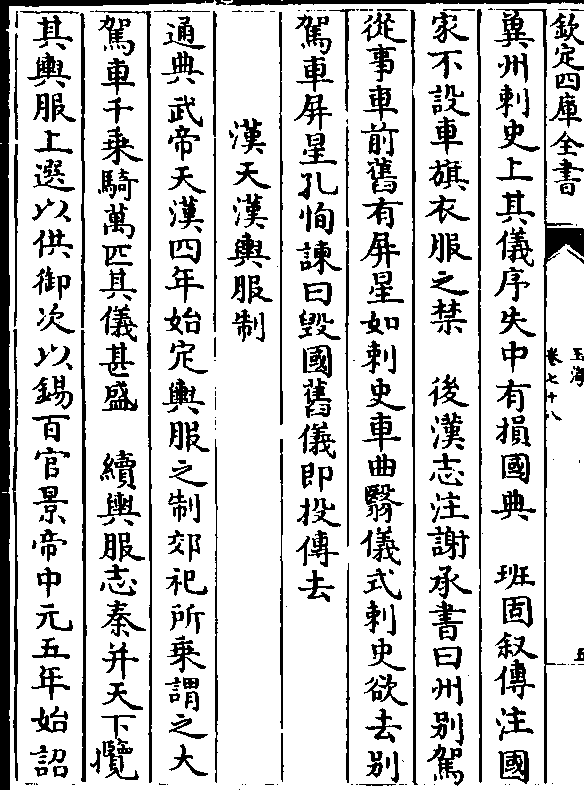 欽定四庫全書
玉海
卷七十八
五
冀州刺史上其儀序失中有損國典　班固叙傳注國
家不設車旗衣服之禁　後漢志注謝承書曰州别駕
從事車前舊有屛星如刺史車曲翳儀式刺史欲去别
駕車屛星孔恂諫曰毀國舊儀即投傳去
漢天漢輿服制
通典武帝天漢四年始定輿服之制郊祀所乗謂之大
駕車千乗騎萬匹其儀甚盛　續輿服志秦并天下攬
其輿服上選以供御次以錫百官景帝中元五年始詔